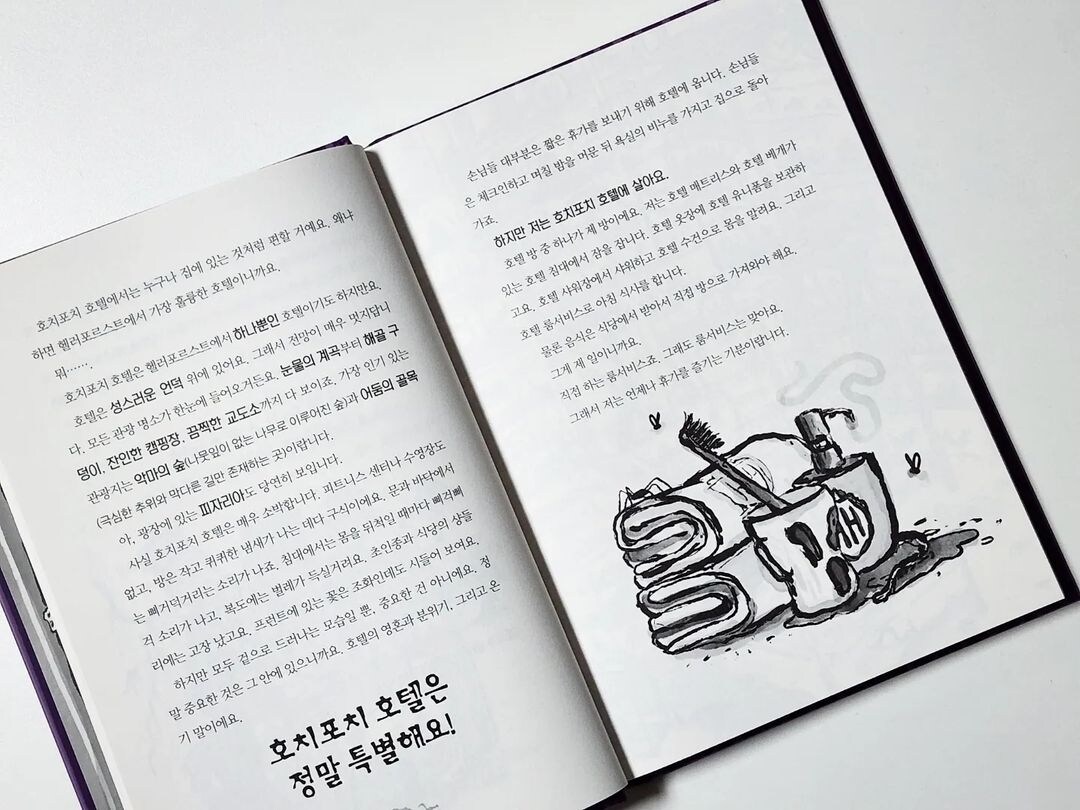 호치포치 호텔에서는 누구나 집에 있는 것처럼 편할 거예요. 왜냐
하면 헬러포르스트에서 가장 훌륭한 호텔이니까요.
호치포치 호텔은 헬러포르스트에서 하나뿐인 호텔이기도 하지만요.
뭐…….
호텔은 성스러운 언덕 위에 있어요. 그래서 전망이 매우 멋지답니
다. 모든 관광 명소가 한눈에 들어오거든요. 눈물의 계곡부터 해골 구
덩이, 잔인한 캠핑장, 끔찍한 교도소까지 다 보이죠. 가장 인기 있는
관광지는 악마의 숲(나뭇잎이 없는 나무로 이루어진 숲)과 어둠의 골목
(극심한 추위와 막다른 길만 존재하는 곳)이랍니다.
아, 광장에 있는 피자리아도 당연히 보입니다.
사실 호치포치 호텔은 매우 소박합니다. 피트니스 센터나 수영장도
없고, 방은 작고 퀴퀴한 냄새가 나는 데다 구식이에요. 문과 바닥에서
는 삐거덕거리는 소리가 나죠. 침대에서는 몸을 뒤척일 때마다 삐걱삐
걱 소리가 나고, 복도에는 벌레가 득실거려요. 초인종과 식당의 샹들
리에는 고장 났고요. 프런트에 있는 꽃은 조화인데도 시들어 보여요.
하지만 모두 겉으로 드러나는 모습일 뿐, 중요한 건 아니에요. 정
말 중요한 것은 그 안에 있으니까요. 호텔의 영혼과 분위기, 그리고 온
기 말이에요.
호치포치 호텔은
정말 특별해요!
손님들 대부분은 짧은 휴가를 보내기 위해 호텔에 옵니다. 손님들
은 체크인하고 며칠 밤을 머문 뒤 욕실의 비누를 가지고 집으로 돌아
가죠.
하지만 저는 호치포치 호텔에 살아요.
호텔 방 중 하나가 제 방이에요. 저는 호텔 매트리스와 호텔 베개가
있는 호텔 침대에서 잠을 잡니다. 호텔 옷장에 호텔 유니폼을 보관하
고요. 호텔 샤워장에서 샤워하고 호텔 수건으로 몸을 말려요. 그리고
호텔 룸서비스로 아침 식사를 합니다.
물론 음식은 식당에서 받아서 직접 방으로 가져와야 해요.
그게 제 일이니까요.
직접 하는 룸서비스죠. 그래도 룸서비스는 맞아요.
그래서 저는 언제나 휴가를 즐기는 기분이랍니다.
H